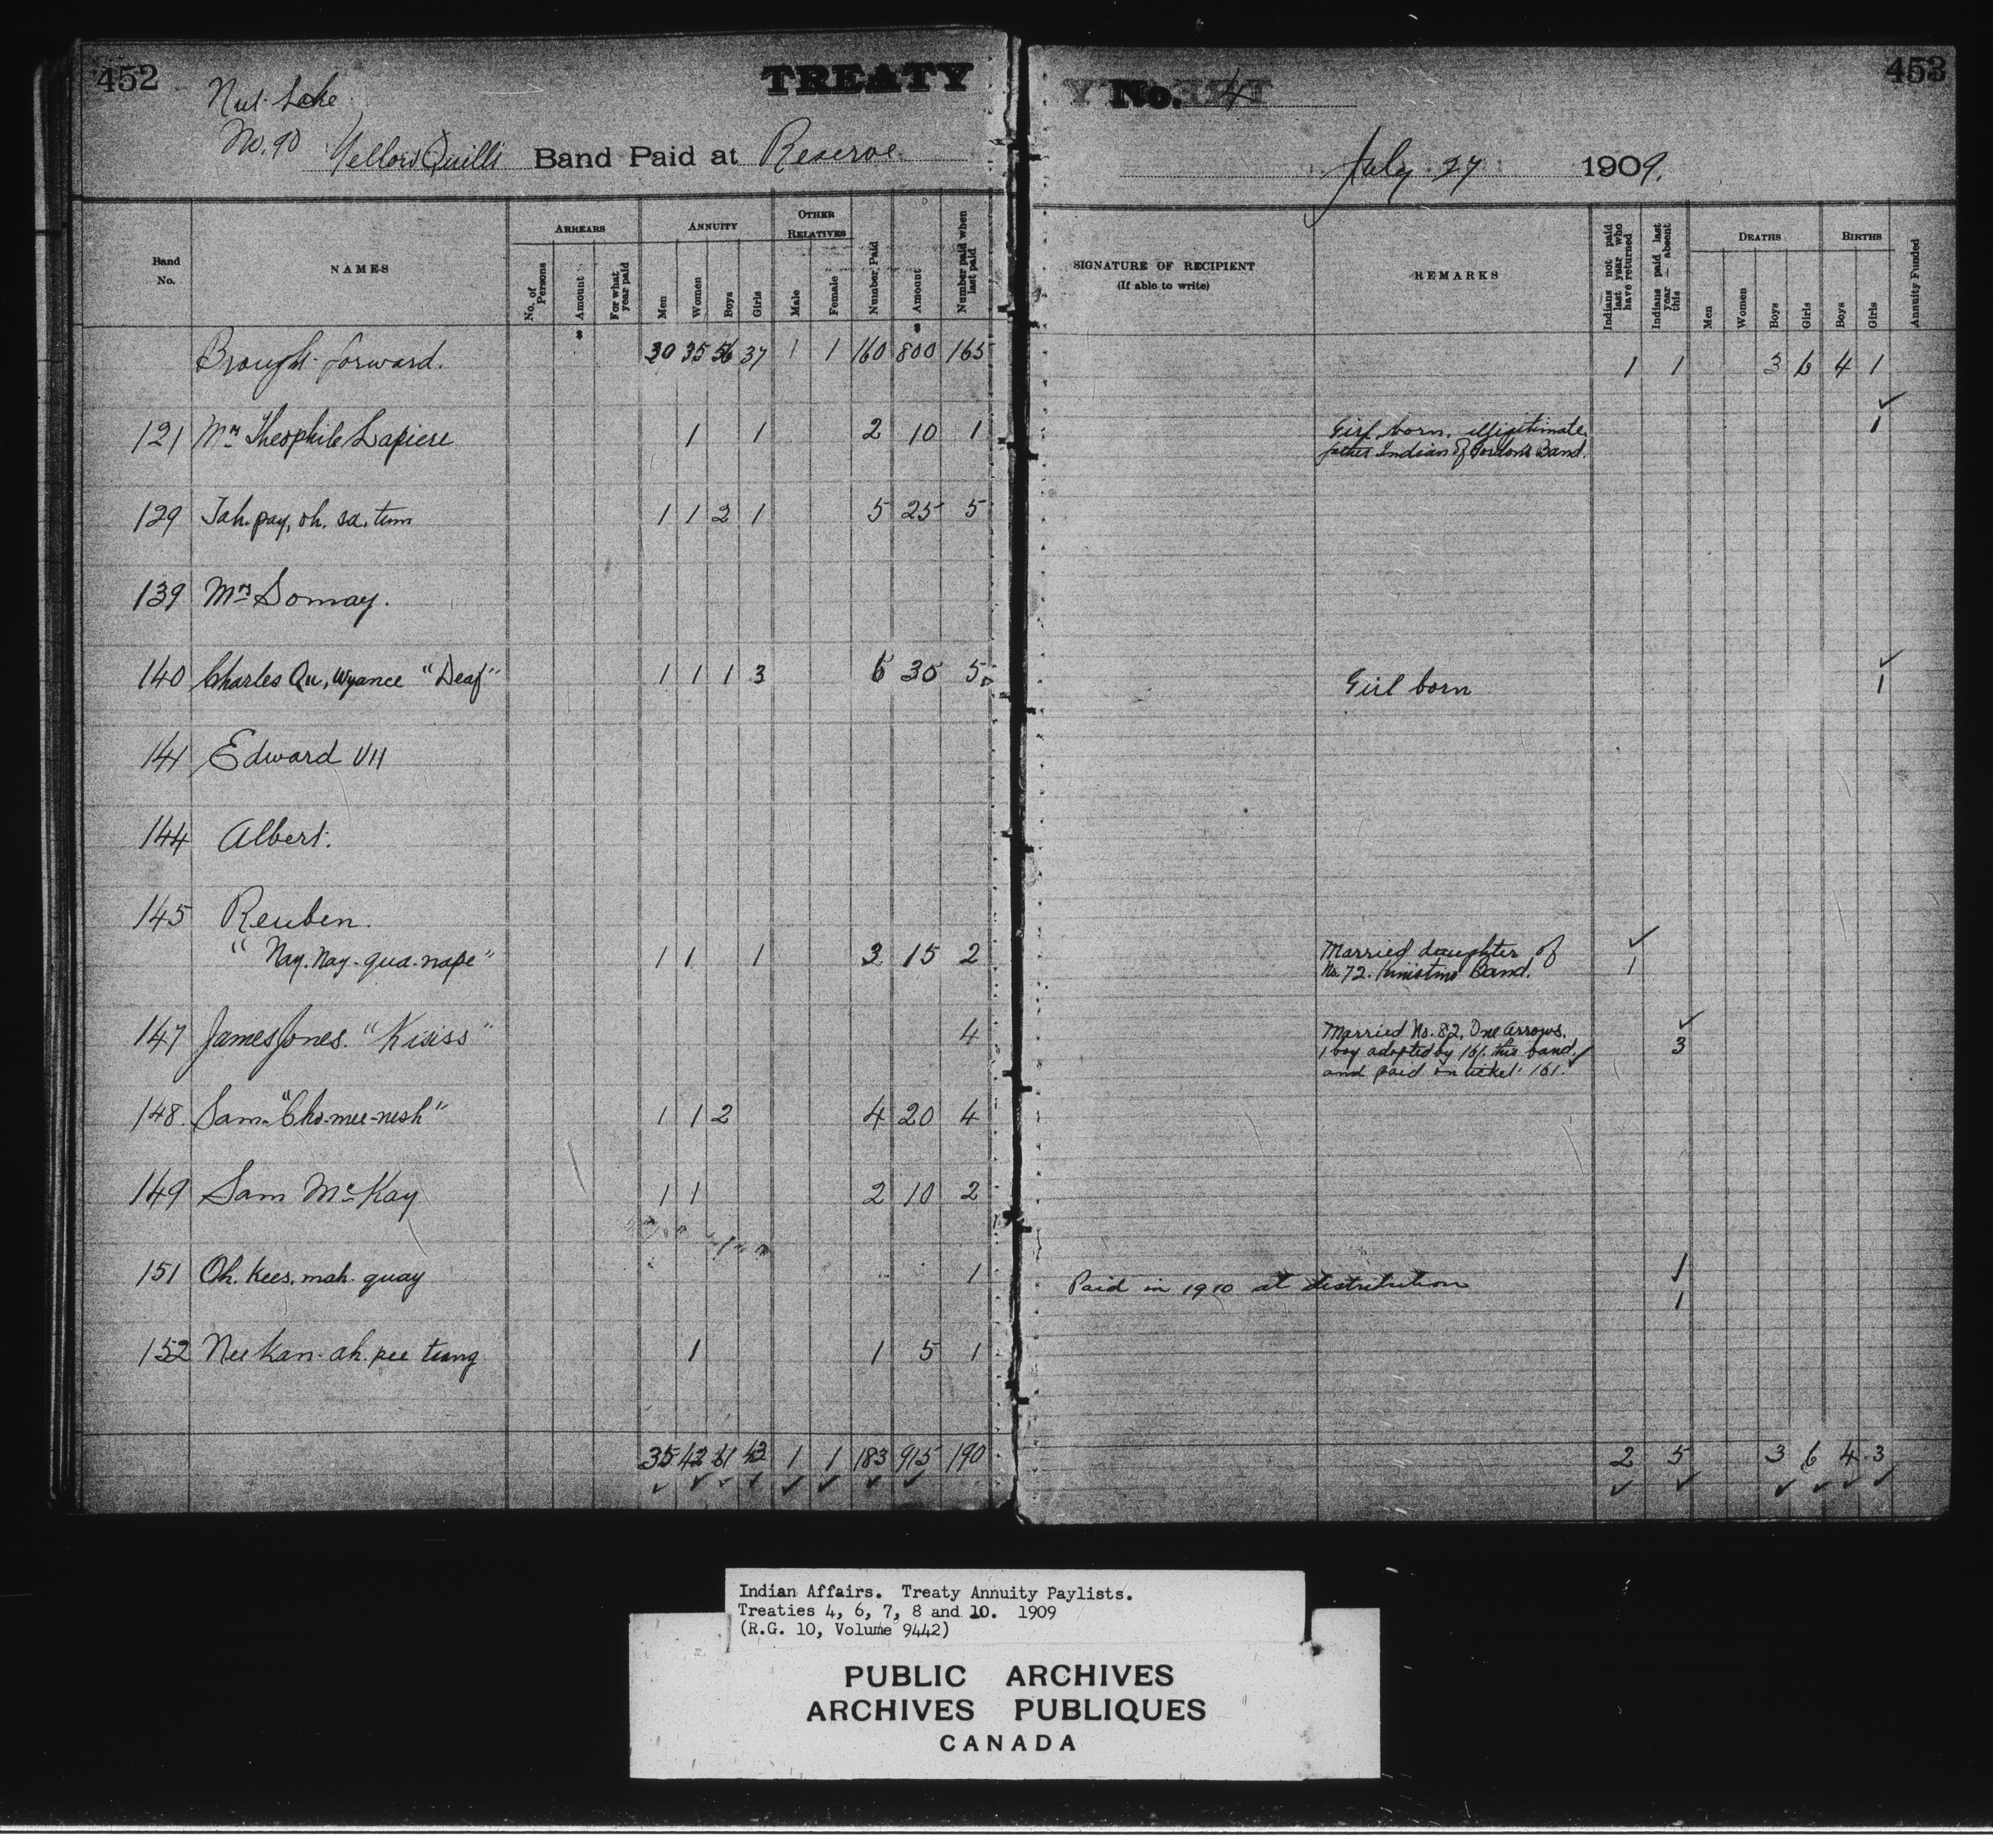 452 TREATY No. 4 453
Nut Lake
No. 90 Yellow Quills Band Paid at Reserve July 27 1909.
Band No. NAMES ARREARS No. of Persons Amount For what year paid ANNUITY Men Women Boys Girls OTHER RELATIVES Male Female Number Paid Amount Number paid when last paid SIGNATURE OF RECIPIENT (If able to write) REMARKS Indians not paid last year who have returned Indians paid last year — absent this DEATHS Men Women Boys Girls BIRTHS Boys Girls Annuity Funded
Brought forward. 30 35 56 37 1 1 160 800 165 1 1 3 6 4 1
121 Mrs Theophile Lapiere 1 1 2 10 1 Girl born, illegitimate, 1
father Indian of Gordon's Band.
129 Tah. pay, oh, sa, tum 1 1 2 1 5 25 5
139 Mrs Somay.
140 Charles Qu, Wyance "Deaf" 1 1 1 3 6 30 5 Girl born 1
141 Edward VII
144 Albert.
145 Reuben.
"Nay. Nay-qua-nape" 1 1 1 3 15 2 Married daughter of
No. 72. Kinistino Band. 1
147 James Jones. "Kisiss" 4 Married No. 82, One Arrows.
1 boy adopted by 161. this band 3
and paid on ticket 161.
148. Sam "Cho-mee-nesh" 1 1 2 4 20 4
149 Sam McKay 1 1 2 10 2
151 Oh. kees, mah. quay 1 Paid in 1910 at distribution 1
1
152 Nee kan-ah. pee tung 1 1 5 1
35 42 61 43 1 1 183 915 190 2 5 3 6 4 3
Indian Affairs. Treaty Annuity Paylists.
Treaties 4, 6, 7, 8 and 10. 1909
(R.G. 10, Volume 9442)
PUBLIC ARCHIVES
ARCHIVES PUBLIQUES
CANADA